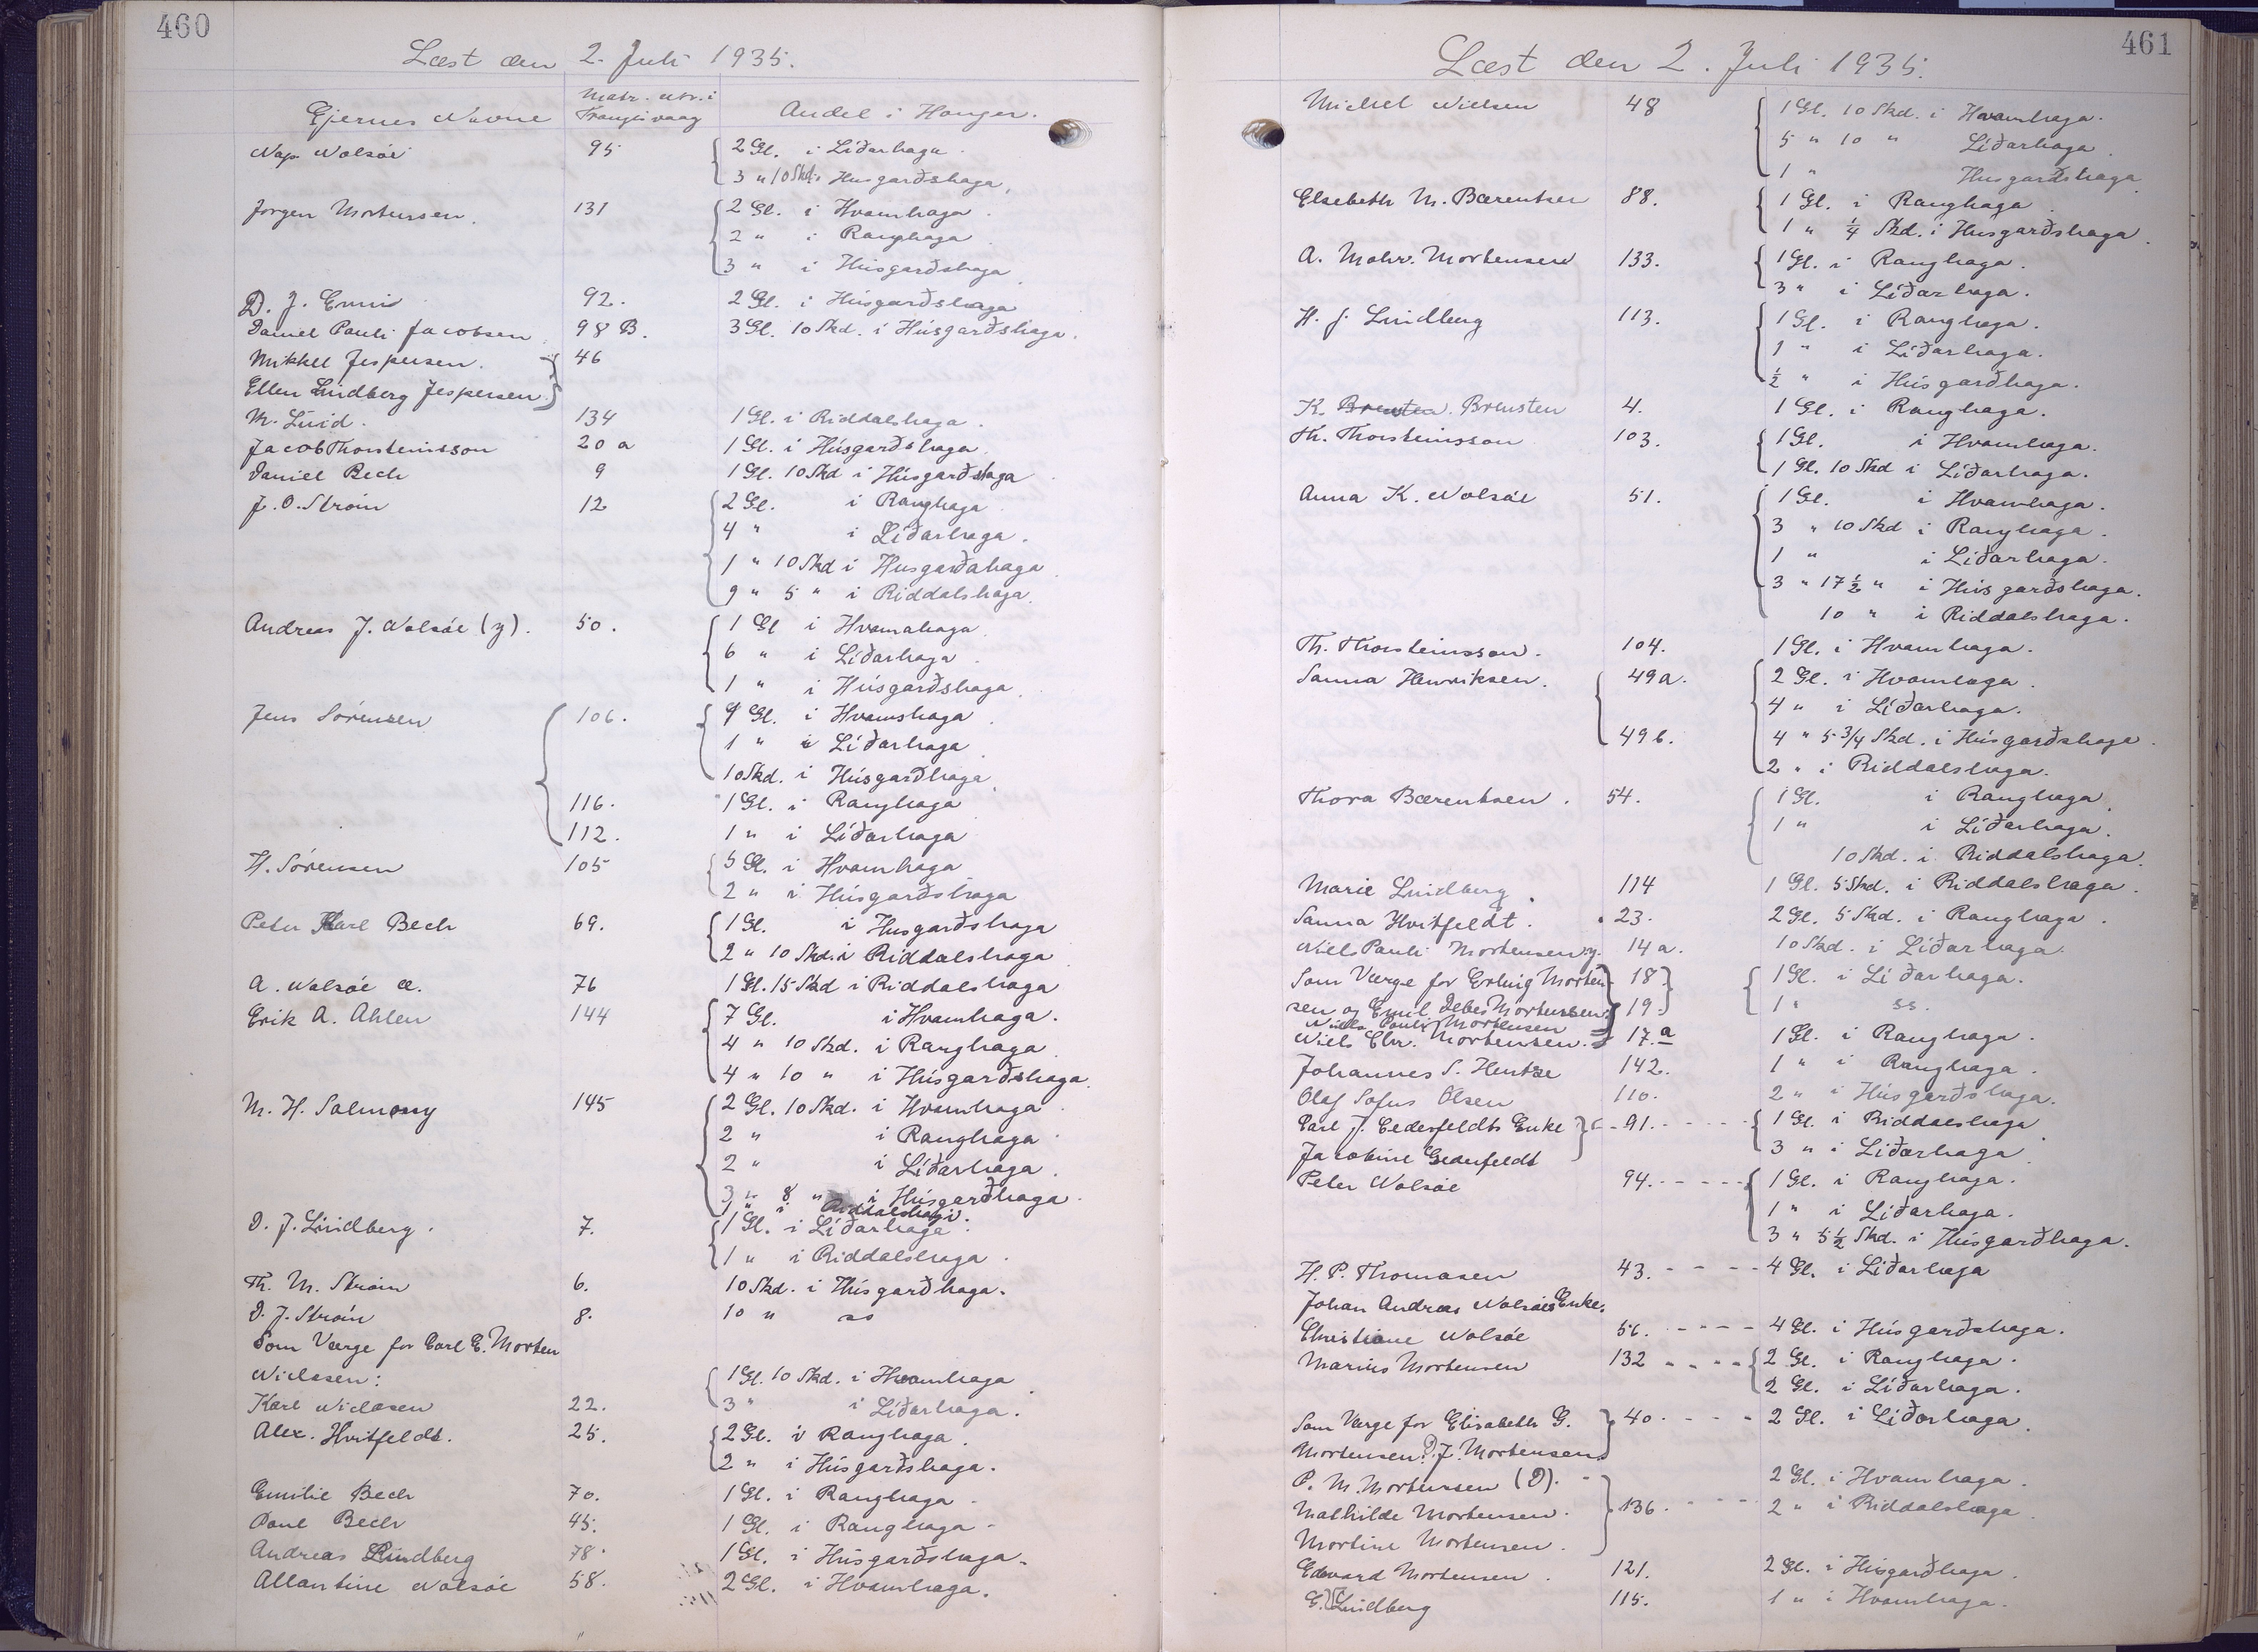 460
Læst den 2. Juli 1935.
Ejernes Navne Matr. Nr. i Trangisvaag Andel i Hauger.
Nap. Nolsøe 95 2 Gl. i Líðarhaga
3 " 10 Skd. i Husgarðshaga
Jørgen Mortensen. 131 2 Gl. i Hvamhaga
2 " i Ranghaga
3 " i Húsgarðshaga
D. J. Enni 92. 2 Gl. i Húsgarðshaga
Daniel Pauli Jacobsen 98 B. 3 Gl. 10 Skd. i Húsgarðshaga.
Mikkel Jespersen. 46
Ellen Lindberg Jespersen
M. Lúid. 134 1 Gl. i Riddalshaga.
Jacob Thorsteinsson 20 a 1 Gl. i Húsgarðshaga
Daniel Bech 9 1 Gl. 10 Skd i Húsgarðshaga
J. O. Strøm 12 2 Gl. i Ranghaga
4 " i Líðarhaga.
1 " 10 Skd i Husgarðahaga
9 " 5 " i Riddalshaga
Andreas J. Nolsøe (y). 50. 1 Gl i Hvamahaga
6 " i Líðarhaga
1 " i Húsgarðshaga
Jens Sørensen 106. 9 Gl. i Hvamshaga
1 " i Líðarhaga
10 Skd. i Húsgarðhaga
116. 1 Gl. i Ranghaga
112. 1 " i Líðarhaga
H. Sørensen 105 5 Gl. i Hvamhaga
2 " i Húsgarðshaga
Peter Karl Bech 69. 1 Gl. i Husgarðshaga
2 " 10 Skd. i Riddalshaga
A. Nolsøe æ. 76 1 Gl. 15 Skd i Riddalshaga
Erik A. Ahlen 144 7 Gl. i Hvamhaga.
4 " 10 Skd. i Ranghaga
4 " 10 " i Húsgarðshaga
M. H. Salmony 145 2 Gl. 10 Skd. i Hvamhaga
2 " i Ranghaga
2 " i Líðarhaga
3 " 8 " i Húsgarðhaga.
1 " i Riddalshagi.
D. J. Lindberg. 7. 1 Gl. i Líðarhaga
1 " i Riddalshaga
Th. M. Strøm 6. 10 Skd. i Húsgarðhaga.
D. J. Strøm 8. 10 " ss
Som Værge for Carl E. Morten
Niclasen: 1 Gl. 10 Skd. i Hvamhaga
Karl Niclasen 22. 3 " i Líðarhaga.
Alex. Hvitfeldt. 25. 2 Gl. i Ranghaga.
2 " i Húsgarðshaga.
Emilie Bech 70. 1 Gl. i Ranghaga
Poul Bech 45. 1 Gl. i Ranghaga
Andreas Lindberg 78. 1 Gl. i Húsgarðshaga.
Allantine Nolsøe 58. 2 Gl. i Hvamhaga.
461
Læst den 2. Juli 1935.
Michel Nielsen 48 1 Gl. 10 Skd. i Hvamhaga.
5 " 10 " Líðarhaga
1 " Husgarðshaga
Elsebeth M. Bærentsen 88. 1 Gl. i Ranghaga
1 " 1/4 Skd. i Husgarðshaga
A. Mohr. Mortensen 133. 1 Gl. i Ranghaga.
3 " i Líðarhaga.
H. J. Lindberg 113. 1 Gl. i Ranghaga.
1 " i Líðarhaga.
1/2 " i Húsgarðhaga.
K. Brensten 4. 1 Gl. i Ranghaga.
Th. Thorsteinsson 103. 1 Gl. i Hvamhaga.
1 Gl. 10 Skd i Líðarhaga.
Anna K. Nolsøe 51. 1 Gl. i Hvamhaga.
3 " 10 Skd i Ranghaga.
1 " i Líðarhaga.
3 " 17 1/2 " i Húsgarðshaga.
10 " i Riddalshaga.
Th. Thorsteinsson. 104. 1 Gl. i Hvamhaga.
Sanna Henriksen. 49 a. 2 Gl. i Hvamhaga
4 " i Líðarhaga.
49 b. 4 " 5 3/4 Skd. i Húsgarðshaga
2 " i Riddalshaga.
Thora Bærentsen. 54. 1 Gl. i Ranghaga
1 " i Líðarhaga.
10 Skd. i Riddalshaga.
Marie Lindberg. 114 1 Gl. 5 Skd. i Riddalshaga.
Sanna Hvitfeldt. 23. 2 Gl. 5 Skd. i Ranghaga.
Niels Pauli Mortensen y. 14 a. 10 Skd. i Líðarhaga.
Som Værge for Erling Morten- 18 1 Gl. i Líðarhaga.
sen og Emil Debes Mortensen: 19. 1 " ss.
Niels Pauli Mortensen
Niels Chr. Mortensen. 17 a 1 Gl. i Ranghaga.
Johannes S. Hentze 142. 1 " i Ranghaga.
Olaf Sofus Olsen 110. 2 " i Húsgarðshaga.
Carl J. Cedersfeldts Enke 91. 1 Gl. i Riddalshaga
Jacobine Gederfeldt 3 " i Líðarhaga
Peter Nolsøe 94. 1 Gl. i Ranghaga.
1 " i Líðarhaga.
3 " 5 1/2 Skd. i Húsgarðhaga.
H. P. Thomasen 43. 4 Gl. i Líðarhaga
Johan Andreas Nolsøes Enke.
Christiane Nolsøe 56. 4 Gl. i Húsgarðshaga.
Marius Mortensen 132 2 Gl. i Ranghaga.
2 Gl. i Líðarhaga.
Som Værge for Elisabeth G. 40. 2 Gl. i Líðarhaga
Mortensen: D. J. Mortensen
P. M. Mortensen (D). 2 Gl. i Hvamhaga.
Mathilde Mortensen. 136. 2 " i Riddalshaga
Mortine Mortensen.
Edward Mortensen. 121. 2 Gl. i Húsgarðhaga
G. Lindberg 115. 1 " i Hvamhaga.